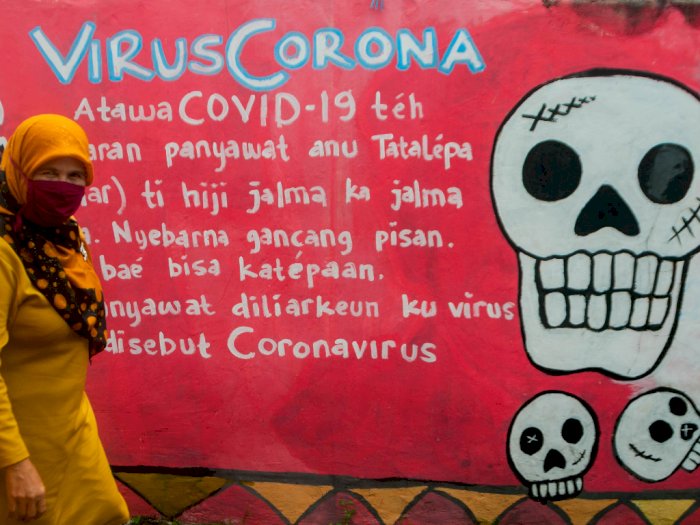 VIRUSCORONA
) Atawa COVID-19 téh
aran panyawat anu Tatalépa
ar) ti hiji jalma ka jalma
a. Nyebarna gancang pisan.
baé bisa katépaan.
nyawat diliarkeun ku virus
disebut Coronavirus